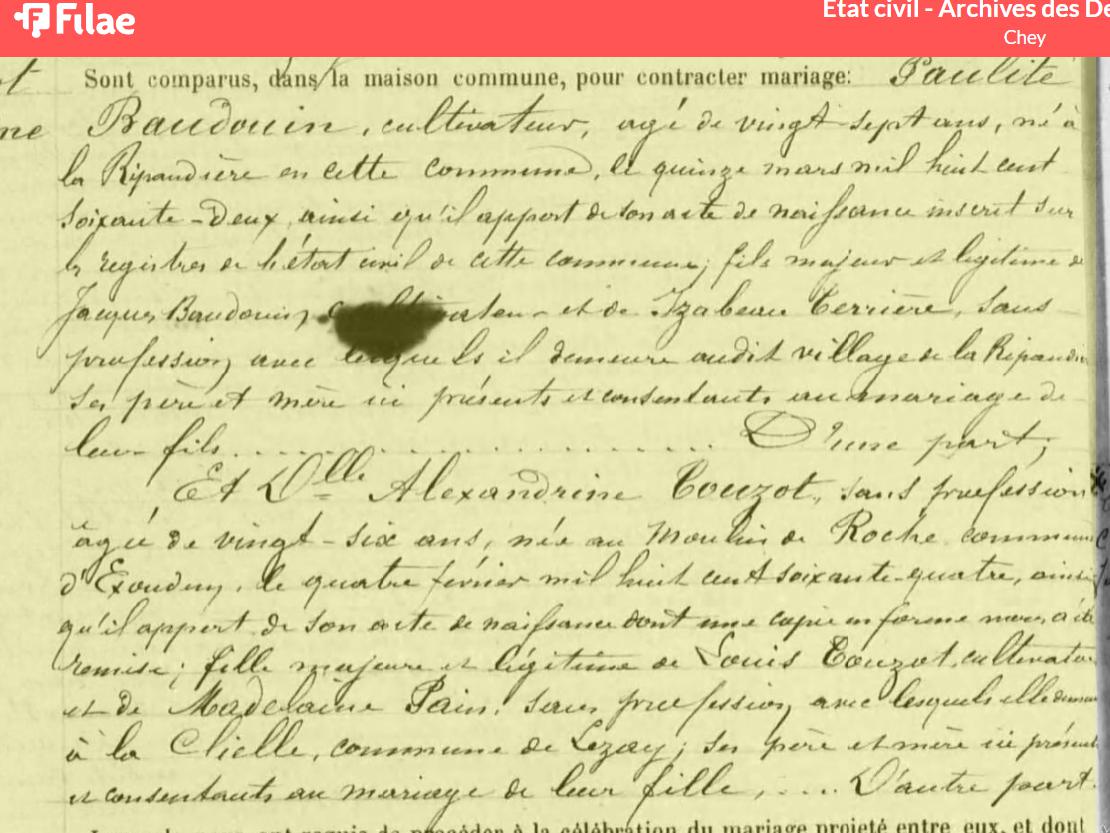 Filae
Etat civil - Archives des De
Chey
Sont comparus, dans la maison commune, pour contracter mariage: Paulite
ne Baudouin, cultivateur, agé de vingt-sept ans, né à
la Ripaudière en cette commune, le quinze mars mil huit cent
soixante-Deux, ainsi qu'il appert de son acte de naissance inscrit sur
les registres de l'état civil de cette commune; fils majeur et légitime de
Jacques Baudouin, cultivateur et de Izabeau Terrière, sans
proufession, avec lesquels il demeure audit village de la Ripaudiè
ses père et mère ici présents et consentants au mariage de
leur fils. D'une part;
Et Dlle Alexandrine Touzot, sans proufession
âgée de vingt-six ans, née au Moulin de Roche commune
d'Exoudun, le quatre février mil huit cent soixante-quatre, ainsi
qu'il appert de son acte de naissance dont une copie en forme nous a été
remise; fille majeure et légitime de Louis Touzot, cultivateur
et de Madelaine Pain, sans proufession, avec lesquels elle demeure
à la Clielle, commune de Lezay; ses père et mère ici présents
et consentants au mariage de leur fille, .... D'autre part.
de procéder à la célébration du mariage projeté entre eux, et dont